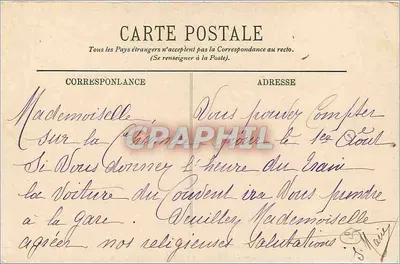 CARTE POSTALE
Tous les Pays étrangers n'acceptent pas la Correspondance au recto.
(Se renseigner à la Poste).
CORRESPONLANCE ADRESSE
Mademoiselle Vous pouvez Compter
sur la pour le 1er Août
Si Vous donnez l'heure du Train
la Voiture du Couvent ira Vous prendre
à la gare. Veuillez Mademoiselle
agréer nos religieuses Salutations
PROPHILA